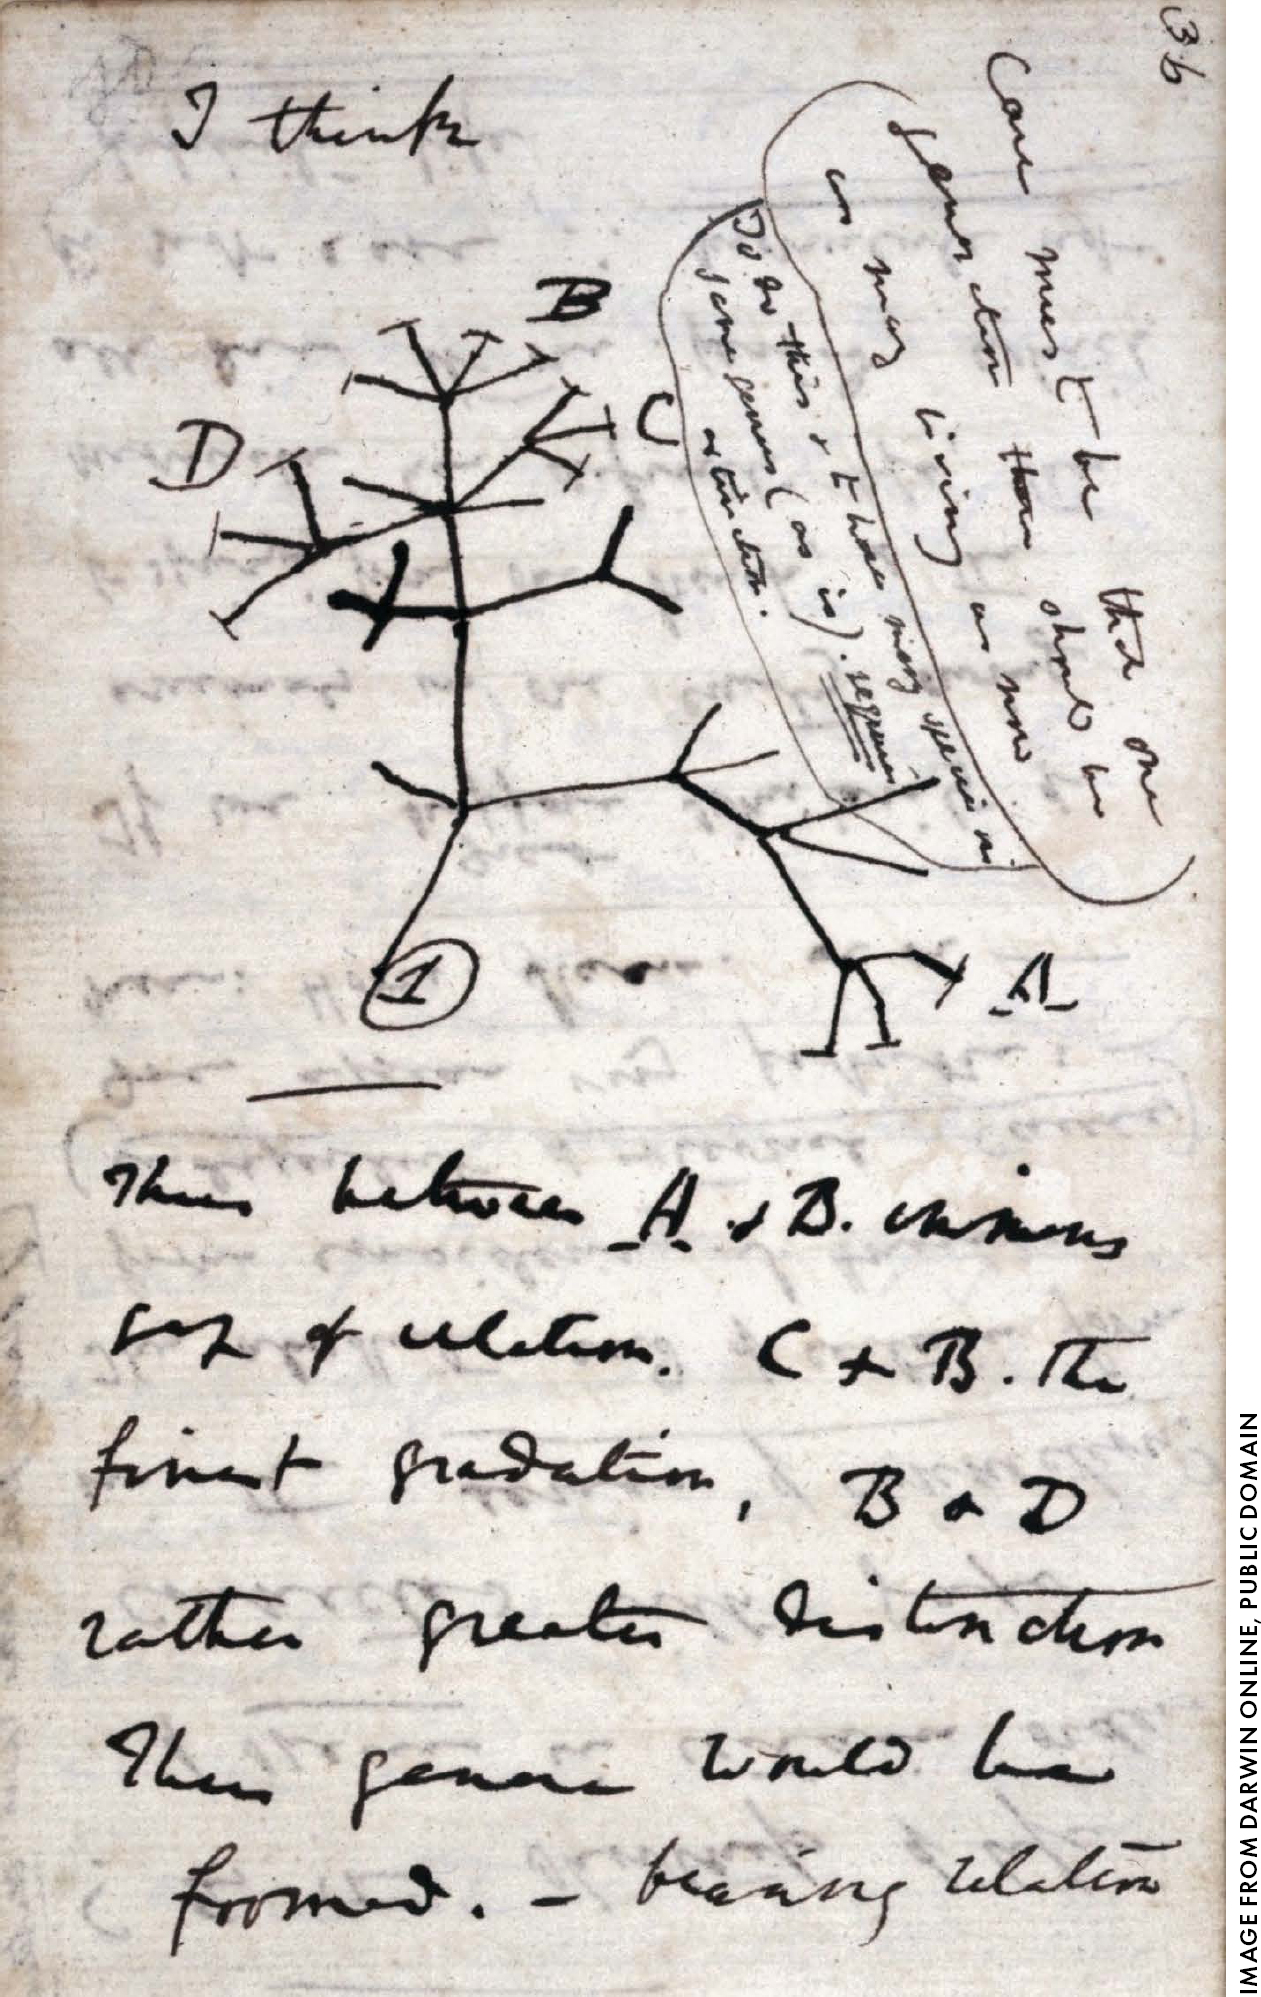 36
I think
Case must be that one
generation then should be
as many living as now
To do this & to have many species in
same genus (as is). requires
extinction.
B
C
D
1
A
Thus between A & B. immens
gap of relation. C & B. The
finest gradation, B & D
rather greater distinction
Thus genera would be
formed. — bearing relation
IMAGE FROM DARWIN ONLINE, PUBLIC DOMAIN